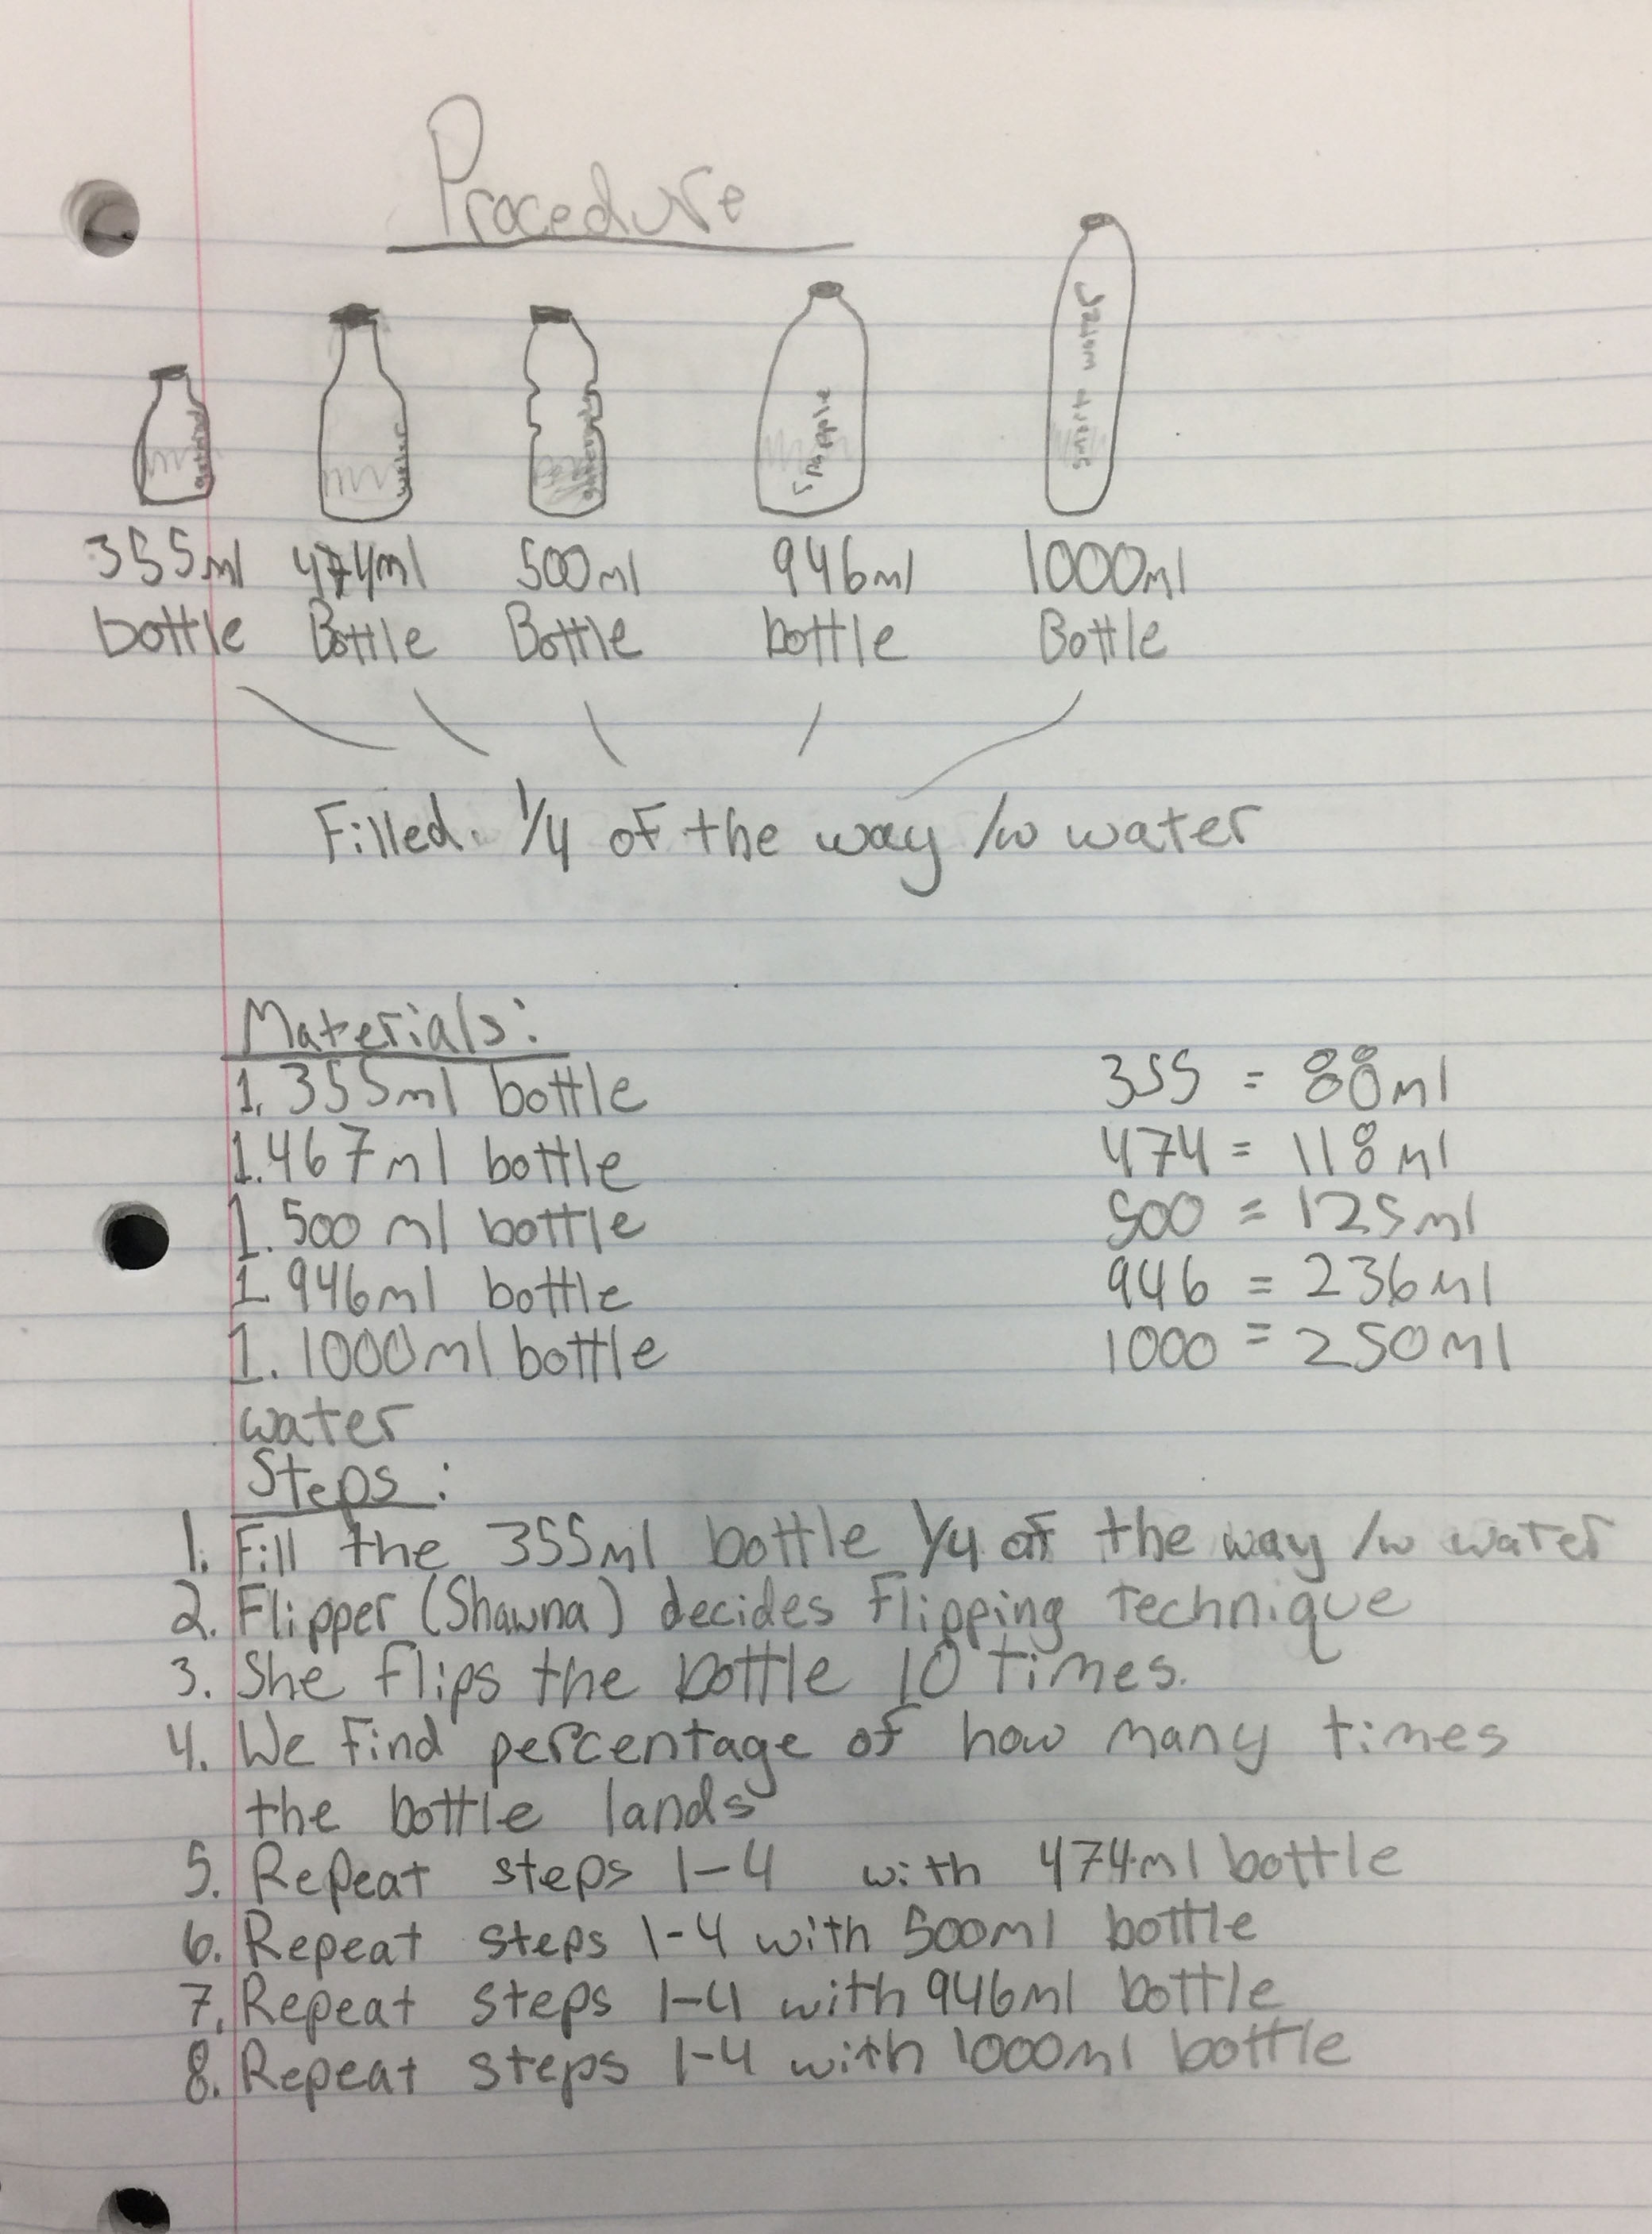 Procedure
water
Snapple
smart water
355ml 474ml 500ml 946ml 1000ml
bottle Bottle Bottle bottle Bottle
Filled 1/4 of the way /w water
Materials:
1. 355ml bottle 355 = 88ml
1. 467ml bottle 474 = 118ml
1. 500 ml bottle 500 = 125ml
1. 946ml bottle 946 = 236ml
1. 1000ml bottle 1000 = 250ml
water
Steps:
1. Fill the 355ml bottle 1/4 of the way /w water
2. Flipper (Shawna) decides flipping technique
3. She flips the bottle 10 times.
4. We find percentage of how many times
the bottle lands
5. Repeat steps 1-4 with 474ml bottle
6. Repeat steps 1-4 with 500ml bottle
7. Repeat steps 1-4 with 946ml bottle
8. Repeat steps 1-4 with 1000ml bottle